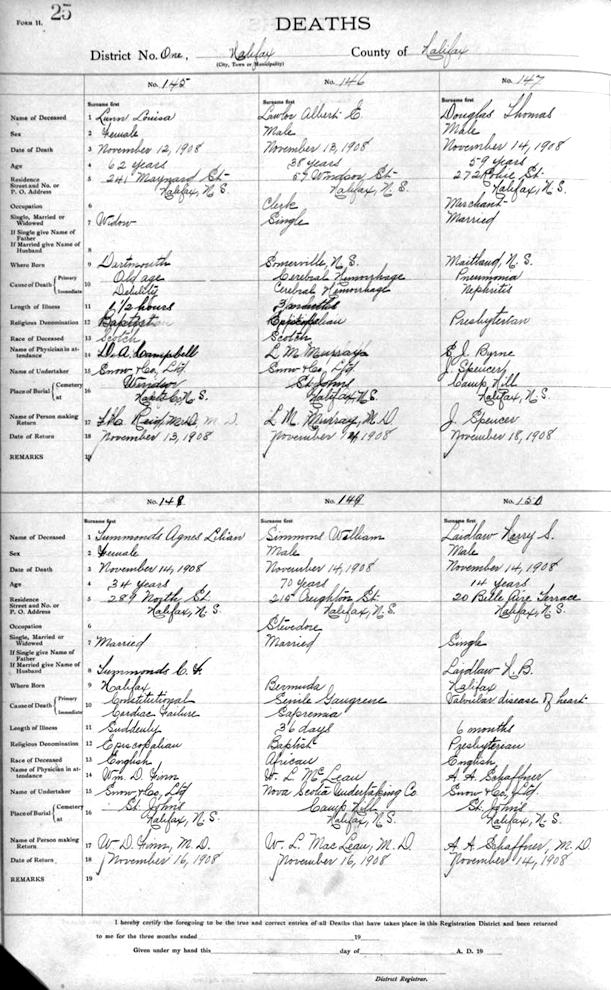 FORM H. 25
DEATHS
District No. One, Halifax County of Halifax
(City, Town or Municipality)
No. 145 No. 146 No. 147
Surname first Surname first Surname first
Name of Deceased 1 Lunn Louisa Lawlor Albert E. Douglas Thomas
Sex 2 Female Male Male
Date of Death 3 November 12, 1908 November 13, 1908 November 14, 1908
Age 4 62 years 38 years 59 years
Residence Street and No. or P. O. Address 5 241 Maynard St 59 Windsor St 272 Robie St.
Halifax, N.S. Halifax, N.S. Halifax, N.S.
Occupation 6 Clerk Merchant
Single, Married or Widowed 7 Widow Single Married
If Single give Name of Father
If Married give Name of Husband 8
Where Born 9 Dartmouth Somerville, N.S. Maitland, N.S.
Cause of Death { Primary Old age Cerebral Hemorrhage Pneumonia
Immediate 10 Debility Cerebral Hemorrhage Nephritis
Length of Illness 11 1 1/2 hours
Religious Denomination 12 Baptist Episcopalian Presbyterian
Race of Deceased 13 Scotch Scotch
Name of Physician in attendance 14 D. A. Campbell L. M. Murray E. J. Byrne
Name of Undertaker 15 Snow & Co, Ltd Snow & Co, Ltd J. Spencer
Place of Burial { Cemetery at 16 Windsor St. Johns Camp Hill
N.S. Halifax N.S. Halifax, N.S.
Name of Person making Return 17 M.D. L. M. Murray, M.D J. Spencer
Date of Return 18 November 13, 1908 November 1908 November 18, 1908
REMARKS 19
No. 148 No. 149 No. 150
Surname first Surname first Surname first
Name of Deceased 1 Tummonds Agnes Lilian Simmons William Laidlaw Harry S.
Sex 2 Female Male Male
Date of Death 3 November 14, 1908 November 14, 1908 November 14, 1908
Age 4 34 years 70 years 14 years
Residence Street and No. or P. O. Address 5 289 North St. 215 Creighton St. 20 Belle Aire Terrace
Halifax, N.S. Halifax, N.S. Halifax, N.S.
Occupation 6 Stevedore
Single, Married or Widowed 7 Married Married Single
If Single give Name of Father
If Married give Name of Husband 8 Tummonds C. F. Laidlaw
Where Born 9 Halifax Bermuda Halifax
Cause of Death { Primary Constitutional Senile Gangrene Valvular disease of heart
Immediate 10 Cardiac Failure Sapremia
Length of Illness 11 Suddenly 36 days 6 months
Religious Denomination 12 Episcopalian Baptist Presbyterian
Race of Deceased 13 English African English
Name of Physician in attendance 14 Wm. D. Finn W. L. McLean A. A. Schaffner
Name of Undertaker 15 Snow & Co, Ltd Nova Scotia Undertaking Co Snow & Co, Ltd.
Place of Burial { Cemetery at 16 St. John's Camp Hill St. John's
Halifax, N.S. Halifax, N.S. Halifax, N.S.
Name of Person making Return 17 W. D. Finn, M.D. W. L. MacLean, M.D A. A. Schaffner, M.D.
Date of Return 18 November 16, 1908 November 16, 1908 November 14, 1908
REMARKS 19
I hereby certify the foregoing to be the true and correct entries of all Deaths that have taken place in this Registration District and been returned
to me for the three months ended 19
Given under my hand this day of A. D. 19
District Registrar.